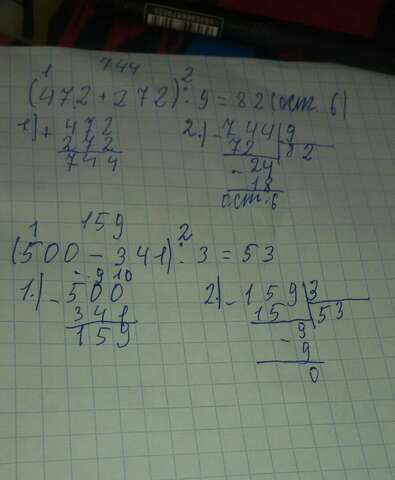 1 744 2
(472 + 272) : 9 = 82 (ост. 6)
1.) + 472
272
744
2.) - 744 | 9
72 | 82
- 24
18
ост. 6
1 159 2
(500 - 341) : 3 = 53
9 10
1.) - 500
341
159
2.) - 159 | 3
15 | 53
- 9
9
0